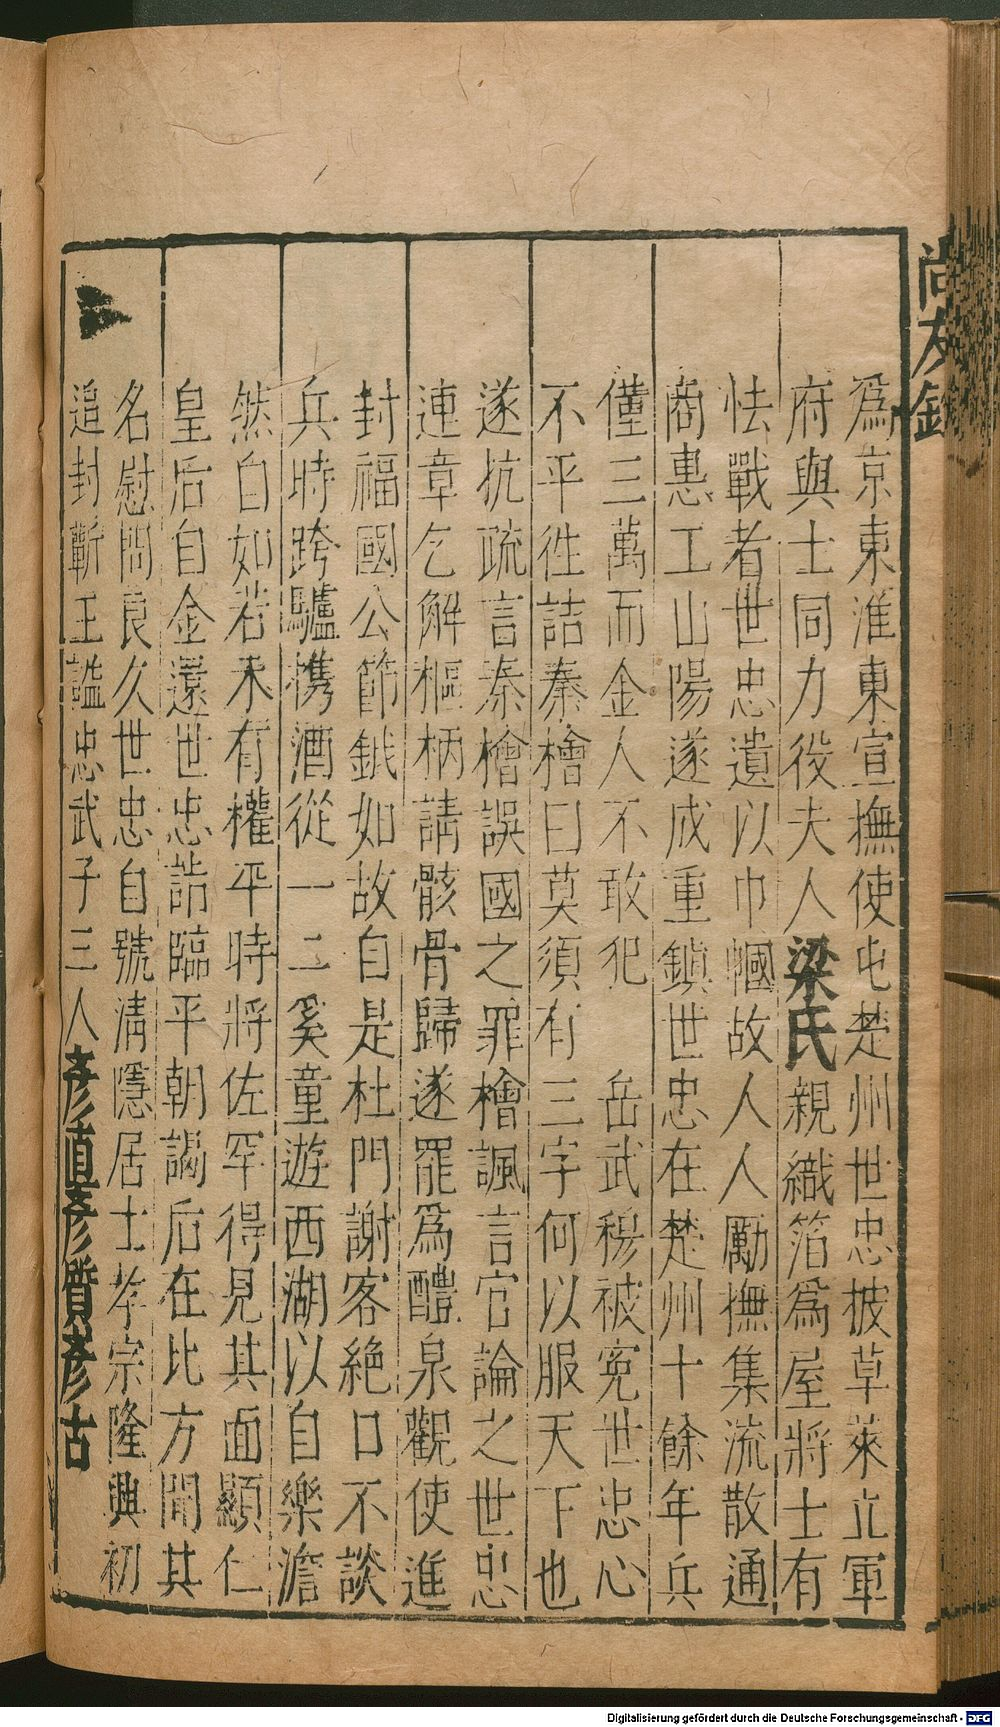 尚友錄
爲京東淮東宣撫使屯楚州世忠披草萊立軍
府與士同力役夫人梁氏親織箔爲屋將士有
怯戰者世忠遺以巾幗故人人勵撫集流散通
商惠工山陽遂成重鎮世忠在楚州十餘年兵
僅三萬而金人不敢犯 岳武穆被寃世忠心
不平徃詰秦檜曰莫須有三字何以服天下也
遂抗疏言秦檜誤國之罪檜諷言官論之世忠
連章乞解樞柄請骸骨歸遂罷爲醴泉觀使進
封福國公節鉞如故自是杜門謝客絶口不談
兵時跨驢携酒從一二奚童遊西湖以自樂澹
然自如若未有權平時將佐罕得見其面顯仁
皇后自金還世忠詣臨平朝謁后在北方聞其
名慰問良久世忠自號淸隱居士孝宗隆興初
追封蘄王謚忠武子三人彥直彥質彥古
Digitalisierung gefördert durch die Deutsche Forschungsgemeinschaft - DFG